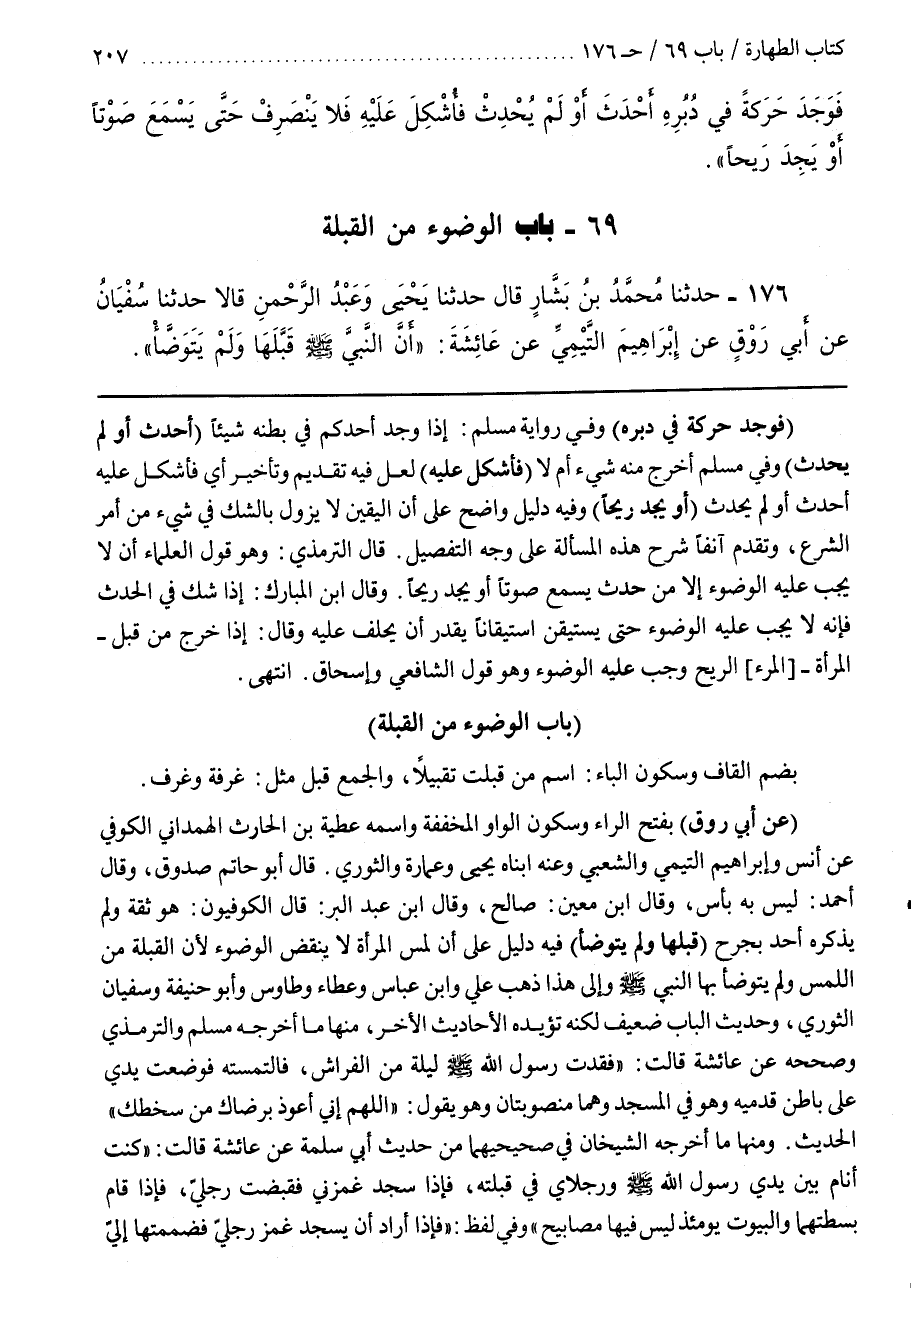 كتاب الطهارة / باب ٦٩ / حـ ١٧٦ ................................................ ٢٠٧
فَوَجَدَ حَرَكَةً في دُبُرِهِ أَحْدَثَ أَوْ لَمْ يُحْدِثْ فَأُشْكِلَ عَلَيْهِ فَلا يَنْصَرِفْ حَتَّى يَسْمَعَ صَوْتاً
أَوْ يَجِدَ رِيحاً».
٦٩ - باب الوضوء من القبلة
١٧٦ - حدثنا مُحمَّدُ بنُ بَشَّارٍ قال حدثنا يَحْيَى وَعَبْدُ الرَّحْمنِ قالا حدثنا سُفْيَانُ
عن أَبي رَوْقٍ عن إِبْرَاهِيمَ التَّيْمِيِّ عن عَائِشَةَ: «أَنَّ النَّبيَّ ﷺ قَبَّلَهَا وَلَمْ يَتَوَضَّأْ».
(فوجد حركة في دبره) وفي رواية مسلم: إذا وجد أحدكم في بطنه شيئاً (أحدث أو لم
يحدث) وفي مسلم أخرج منه شيء أم لا (فأشكل عليه) لعل فيه تقديم وتأخير أي فأشكل عليه
أحدث أو لم يحدث (أو يجد ريحاً) وفيه دليل واضح على أن اليقين لا يزول بالشك في شيء من أمر
الشرع، وتقدم آنفاً شرح هذه المسألة على وجه التفصيل. قال الترمذي: وهو قول العلماء أن لا
يجب عليه الوضوء إلا من حدث يسمع صوتاً أو يجد ريحاً. وقال ابن المبارك: إذا شك في الحدث
فإنه لا يجب عليه الوضوء حتى يستيقن استيقاناً يقدر أن يحلف عليه وقال: إذا خرج من قبل -
المرأة - [المرء] الريح وجب عليه الوضوء وهو قول الشافعي وإسحاق. انتهى.
(باب الوضوء من القبلة)
بضم القاف وسكون الباء: اسم من قبلت تقبيلاً، والجمع قبل مثل: غرفة وغرف.
(عن أبي روق) بفتح الراء وسكون الواو المخففة واسمه عطية بن الحارث الهمداني الكوفي
عن أنس وإبراهيم التيمي والشعبي وعنه ابناه يحيى وعمارة والثوري. قال أبو حاتم صدوق، وقال
أحمد: ليس به بأس، وقال ابن معين: صالح، وقال ابن عبد البر: قال الكوفيون: هو ثقة ولم
يذكره أحد بجرح (قبلها ولم يتوضأ) فيه دليل على أن لمس المرأة لا ينقض الوضوء لأن القبلة من
اللمس ولم يتوضأ بها النبي ﷺ وإلى هذا ذهب علي وابن عباس وعطاء وطاوس وأبو حنيفة وسفيان
الثوري، وحديث الباب ضعيف لكنه تؤيده الأحاديث الأخر، منها ما أخرجه مسلم والترمذي
وصححه عن عائشة قالت: «فقدت رسول الله ﷺ ليلة من الفراش، فالتمسته فوضعت يدي
على باطن قدميه وهو في المسجد وهما منصوبتان وهو يقول: «اللهم إني أعوذ برضاك من سخطك»
الحديث. ومنها ما أخرجه الشيخان في صحيحيهما من حديث أبي سلمة عن عائشة قالت: «كنت
أنام بين يدي رسول الله ﷺ ورجلاي في قبلته، فإذا سجد غمزني فقبضت رجليّ، فإذا قام
بسطتهما والبيوت يومئذ ليس فيها مصابيح» وفي لفظ: «فإذا أراد أن يسجد غمز رجليّ فضممتها إليّ